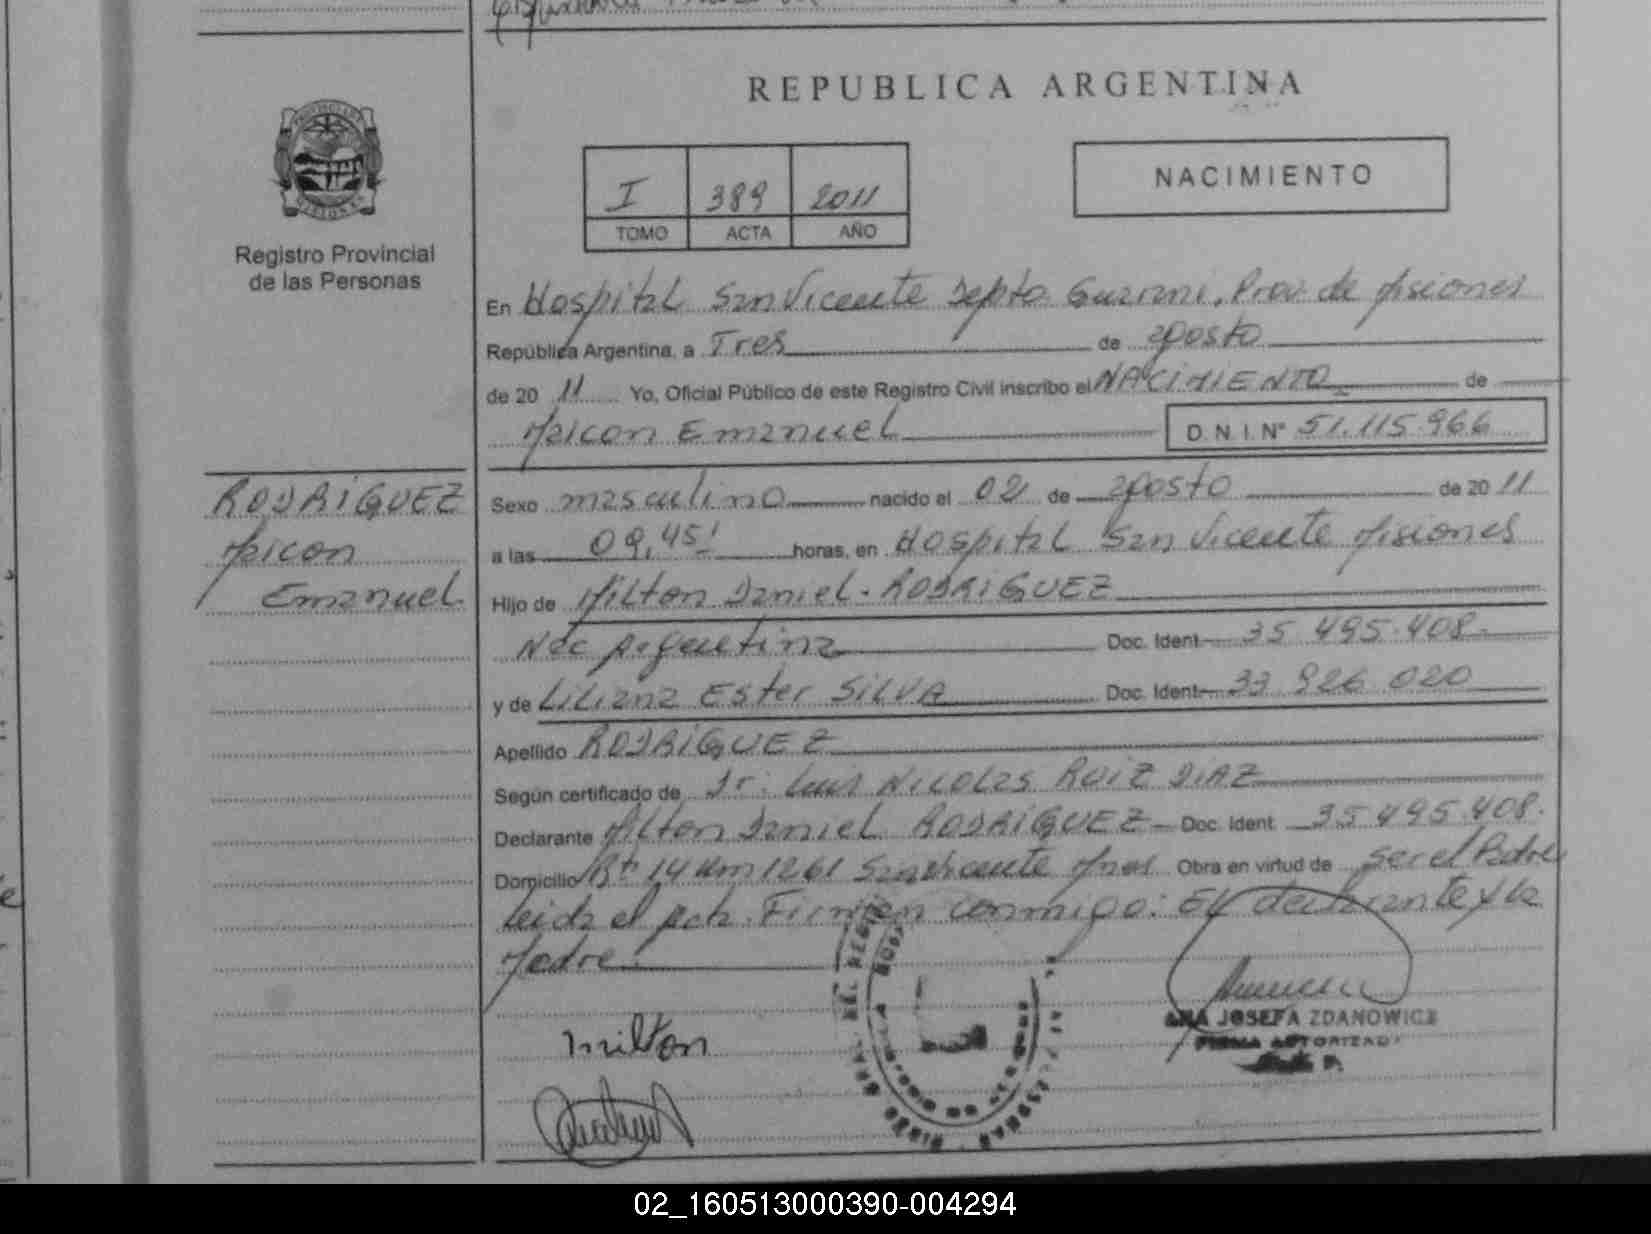 REPUBLICA ARGENTINA
I 389 2011
TOMO ACTA AÑO
NACIMIENTO
Registro Provincial
de las Personas
En Hospital San Vicente Depto Guarani, Prov. de Misiones
República Argentina, a Tres de agosto
de 2011 Yo, Oficial Público de este Registro Civil inscribo el NACIMIENTO de
Maicon Emanuel D.N.I.Nº 51.115.966
RODRIGUEZ
Maicon
Emanuel
Sexo masculino nacido el 02 de agosto de 2011
a las 09,45' horas, en Hospital San Vicente Misiones
Hijo de Milton Daniel - RODRIGUEZ
Nac Argentina Doc. Ident 35 495.408.
y de Liliana Ester SILVA Doc. Ident 33 926 020
Apellido RODRIGUEZ
Según certificado de Dr. Luis Nicolas RUIZ DIAZ
Declarante Milton Daniel RODRIGUEZ Doc. Ident 35 495.408.
Domicilio Rt 14 Km 1261 San Vicente Mnes Obra en virtud de ser el Padre
leida el acta. Firman conmigo: El declarante y la
Madre
milton
ANA JOSEFA ZDANOWICZ
FIRMA AUTORIZADA
02_160513000390-004294